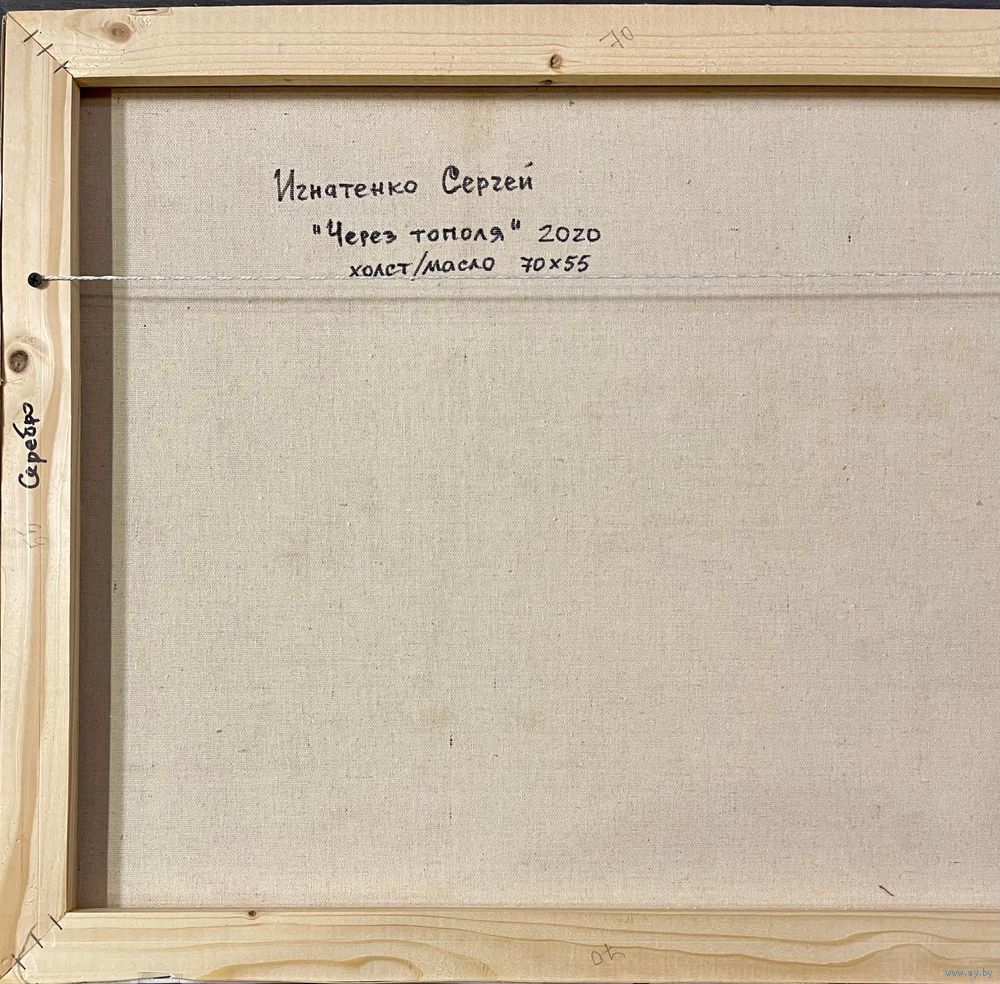 70
Игнатенко Сергей
"Через тополя" 2020
холст/масло 70x55
Серебро
70
www.ay.by